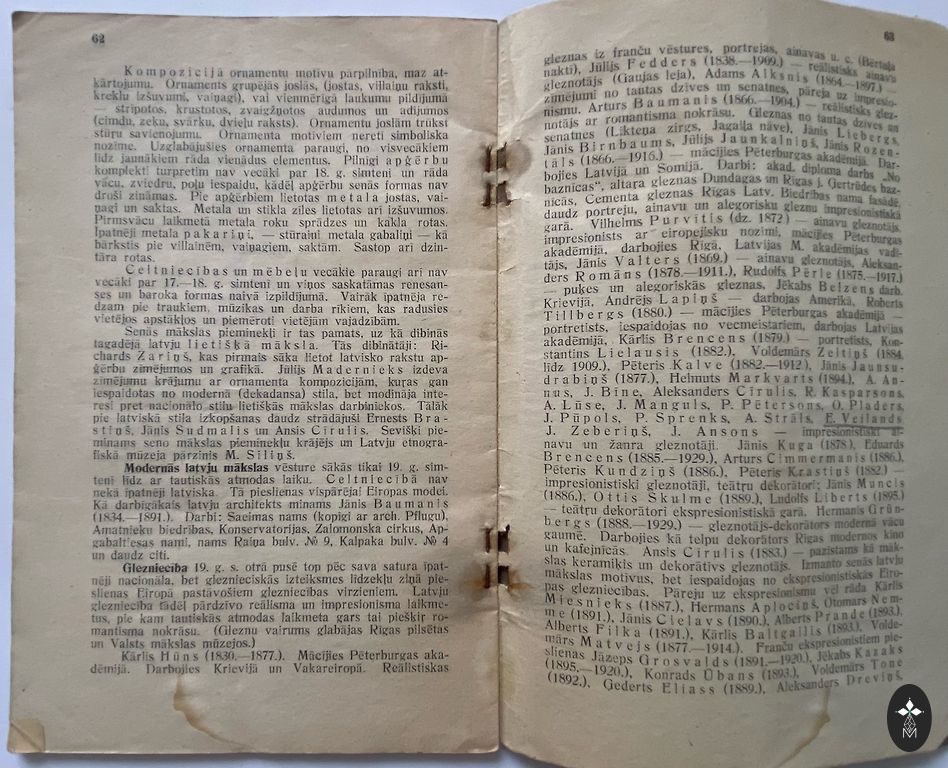 62
Kompozicijā ornamentu motivu pārpilnība, maz at-
kārtojumu. Ornaments grupējas joslās, (jostas, villaiņu raksti,
kreklu izšuvumi, vaiņagi), vai vienmērīgā laukumu pildījumā
— stripotos, krustotos, zvaigžņotos audumos un adījumos
(cimdu, zeķu, svārku, dvieļu raksts). Ornamentu joslām trūkst
stūru savienojumu. Ornamenta motiviem nereti simboliska
nozīme. Uzglabājušies ornamenta paraugi, no visvecākiem
līdz jaunākiem rāda vienādus elementus. Pilnīgi apģērbu
komplekti turpretim nav vecāki par 18. g. simteni un rāda
vācu, zviedru, poļu iespaidu, kādēļ apģērbu senās formas nav
droši zināmas. Pie apģērbiem lietotas metala jostas, vai-
ņagi un saktas. Metala un stikla zīles lietotas arī izšuvumos.
Pirmsvācu laikmetā metala roku sprādzes un kakla rotas.
Īpatnēji metala pakariņi, — stūraini metala gabaliņi — kā
bārkstis pie villainēm, vaiņagiem, saktām. Sastop arī dzin-
tāra rotas.
Celtniecības un mēbeļu vecākie paraugi arī nav
vecāki par 17.—18. g. simteni un viņos saskatāmas renesan-
ses un baroka formas naivā izpildījumā. Vairāk īpatnēja re-
dzam pie traukiem, mūzikas un darba rīkiem, kas radušies
vietējos apstākļos un piemēroti vietējām vajadzībām.
Senās mākslas pieminekļi ir tas pamats, uz kā dibinās
tagadējā latvju lietišķā māksla. Tās dibinātāji: Ri-
chards Zariņš, kas pirmais sāka lietot latvisko rakstu ap-
ģērbu zīmējumos un grafikā. Jūlijs Madernieks izdeva
zīmējumu krājumu ar ornamenta kompozicijām, kuŗas gan
iespaidotas no modernā (dekadansa) stila, bet modināja inte-
resi pret nacionālo stilu lietišķās mākslas darbiniekos. Tālāk
pie latviskā stila izkopšanas daudz strādājuši Ernests Bra-
stiņš, Jānis Sudmalis un Ansis Cīrulis. Sevišķi pie-
minams seno mākslas pieminekļu krājējs un Latvju etnogra-
fiskā mūzeja pārzinis M. Siliņš.
Modernās latvju mākslas vēsture sākās tikai 19. g. sim-
tenī līdz ar tautiskās atmodas laiku. Celtniecībā nav
nekā īpatnēji latviska. Tā pieslienas vispārējai Eiropas modei.
Kā darbīgākais latvju architekts minams Jānis Baumanis
(1834.—1891.). Darbi: Saeimas nams (kopīgi ar arch. Pflugu),
Amatnieku biedrības, Konservatorijas, Zalomonska cirkus, Ap-
gabaltiesas nami, nams Raiņa bulv. № 9, Kalpaka bulv. № 4
un daudz citi.
Glezniecība 19. g. s. otrā pusē top pēc sava satura īpat-
nēji nacionāla, bet gleznieciskās izteiksmes līdzekļu ziņā pie-
slienas Eiropā pastāvošiem glezniecības virzieniem. Latvju
glezniecība tādēļ pārdzīvo reālisma un impresionisma laikme-
tus, pie kam tautiskās atmodas laikmeta gars tai piešķir ro-
mantisma nokrāsu. (Gleznu vairums glabājas Rīgas pilsētas
un Valsts mākslas mūzejos.)
Kārlis Hūns (1830.—1877.). Mācījies Pēterburgas aka-
dēmijā. Darbojies Krievijā un Vakareiropā. Reālistiskas
63
gleznas iz franču vēstures, portrejas, ainavas u. c. (Bērtuļa
nakti), Jūlijs Fedders (1838.—1909.) — reālistisks ainavu
gleznotājs (Gaujas leja), Adams Alksnis (1864.—1897.) —
zīmējumi no tautas dzīves un senatnes, pāreja uz impresio-
nismu. Arturs Baumanis (1866.—1904.) — reālistisks glez-
notājs ar romantisma nokrāsu. Gleznas no tautas dzīves un
senatnes (Likteņa zirgs, Jagaiļa nāve), Jānis Liebergs,
Jānis Birnbaums, Jūlijs Jaunkalniņš, Jānis Rozen-
tāls (1866.—1916.) — mācījies Pēterburgas akadēmijā. Dar-
bojies Latvijā un Somijā. Darbi: akad. diploma darbs „No
baznīcas", altaŗa gleznas Dundagas un Rīgas j. Ģertrūdes baz-
nīcās, Cementa gleznas Rīgas Latv. Biedrības nama fasādē,
daudz portreju, ainavu un alegorisku gleznu impresionistiskā
garā. Vilhelms Purvītis (dz. 1872) — ainavu gleznotājs,
impresionists ar eiropejisku nozīmi, mācījies Pēterburgas
akadēmijā, darbojies Rīgā, Latvijas M. akadēmijas vadī-
tājs, Jānis Valters (1869.) — ainavu gleznotājs, Aleksan-
ders Romāns (1878.—1911.), Rudolfs Pērle (1875.—1917.)
— puķes un alegoriskās gleznas, Jēkabs Belzens darb.
Krievijā, Andrējs Lapiņš — darbojas Amerikā, Roberts
Tillbergs (1880.) — mācījies Pēterburgas akadēmijā —
portretists, iespaidojas no vecmeistariem, darbojas Latvijas
akadēmijā, Kārlis Brencens (1879.) — portretists, Kon-
stantins Lielausis (1882.), Voldemārs Zeltiņš (1884.
līdz 1909.), Pēteris Kalve (1882.—1912.), Jānis Jaunsu-
drabiņš (1877.), Helmuts Markvarts (1894.), A. An-
nus, J. Bīne, Aleksanders Cīrulis, R. Kasparsons,
A. Lūse, J. Manguls, P. Pētersons, O. Pladers,
J. Pūpols, P. Sprenks, A. Strāls, E. Veilands
J. Zeberiņš, J. Ansons — impresionistiski ai-
navu un žanra gleznotāji. Jānis Kuga (1878.), Eduards
Brencens (1885.—1929.), Arturs Cimmermanis (1886.),
Pēteris Kundziņš (1886.), Pēteris Krastiņš (1882.) —
impresionistiski gleznotāji, teātru dekorātori; Jānis Muncis
(1886.), Ottis Skulme (1889.), Ludolfs Liberts (1895.)
— teātru dekorātori ekspresionistiskā garā. Hermanis Grīn-
bergs (1888.—1929.) — gleznotājs-dekorātors modernā vācu
gaumē. Darbojies kā telpu dekorātors Rīgas modernos kino
un kafejnīcās. Ansis Cīrulis (1883.) — pazīstams kā māk-
slas keramiķis un dekorātīvs gleznotājs. Izmanto senās latvju
mākslas motivus, bet iespaidojas no ekspresionistiskās Eiro-
pas glezniecības. Pāreju uz ekspresionismu vēl rāda Kārlis
Miesnieks (1887.), Hermans Aplociņš, Otomars Nem-
me (1891.), Jānis Cielavs (1890.), Alberts Prande (1893.),
Alberts Filka (1891.), Kārlis Baltgailis (1893.), Volde-
mārs Matvejs (1877.—1914.). Franču ekspresionistiem pie-
slienas Jāzeps Grosvalds (1891.—1920.), Jēkabs Kazaks
(1895.—1920.), Konrads Ubans (1893.), Voldemārs Tone
(1892.), Ģederts Eliass (1889.), Aleksanders Dreviņš,
M